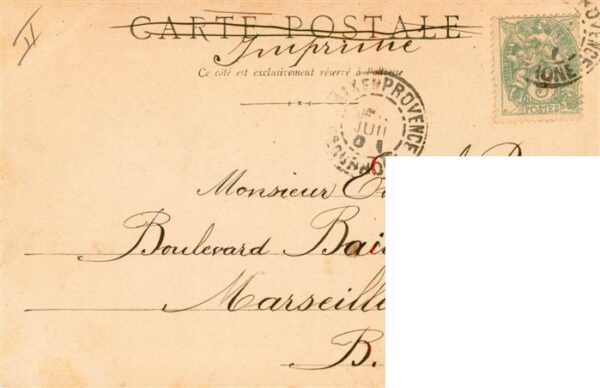 CARTE POSTALE
Imprimé
Ce côté est exclusivement réservé à l'adresse
AIX EN PROVENCE
JUIL
01
POSTES
Monsieur
Boulevard
Marseille
B.